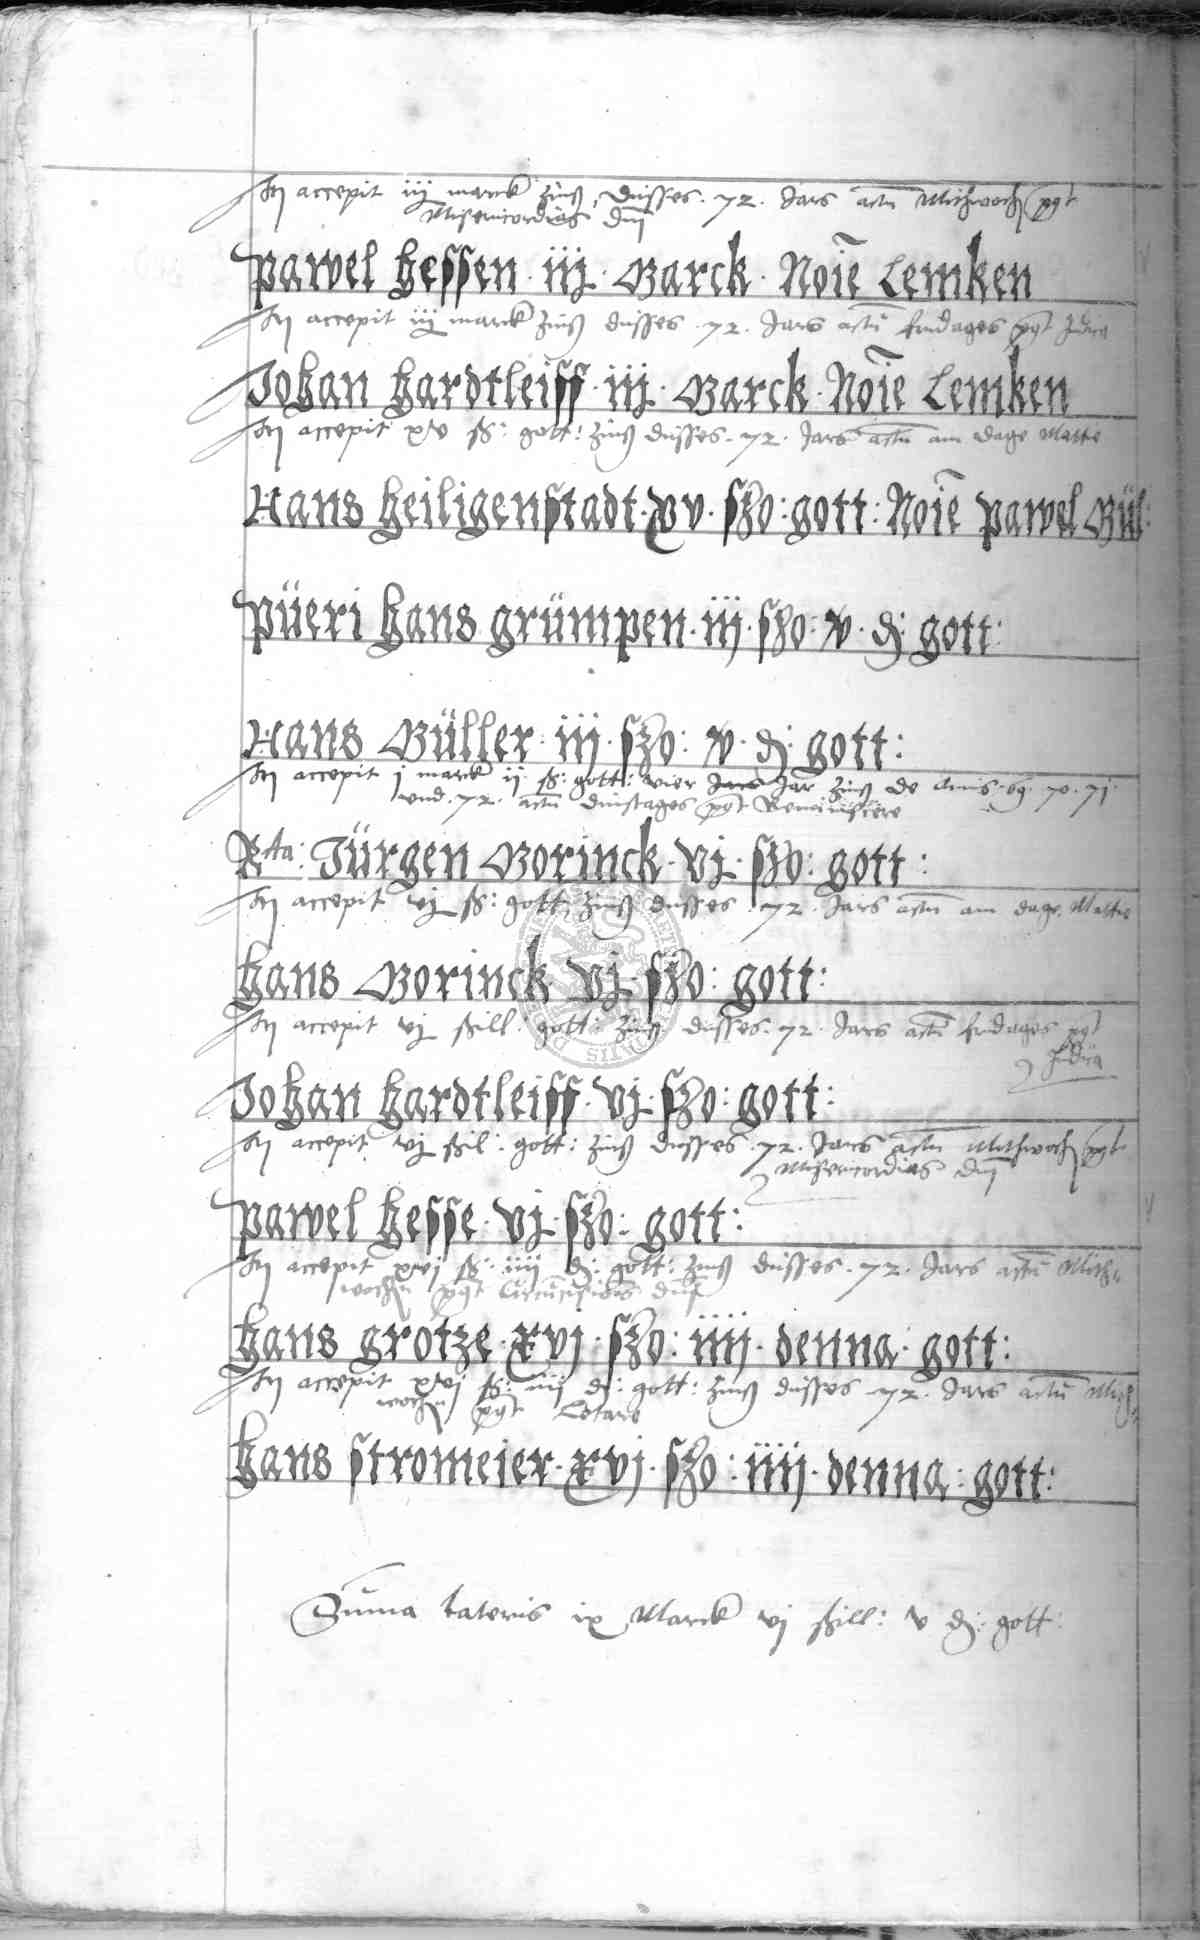 Hij accepit iij marck zinß dusses . 72 . Jars actū Mithwoch pqt
Misericordias dnī
pawel hessen · iij · Marck · Noīe Lemken
Hij accepit iij marck zinß dusses . 72 . Jars actū fridages pqt Judica
Johan hardtleiss · iij · Marck · Noīe Lemken
Hij accepit xv ß : gott : zinß dusses . 72 . Jars actū am dage Mattie
Hans heiligenstadt · xv · ßo : gott : Noīe pawel Mül:
püeri hans grümpen · iij · ßo : v · dj gott :
Hans Müller · iij · ßo : v · dj gott :
Hij accepit j marck ij ß : gott : vier Jar zinß de Anis . 69 . 70 . 71 .
und . 72 . actū dinstages pqt Reminiscere
Rta : Jürgen Morinck · vj · ßo : gott :
Hij accepit vj ß : gott : zinß dusses . 72 . Jars actū am dage Mattie
hans Morinck vj · ßo : gott :
Hij accepit vj ßill : gott : zinß dusses . 72 . Jars actū fridages pqt
Judica
Johan hardtleiss · vj · ßo : gott :
Hij accepit vj ßil : gott : zinß dusses . 72 . Jars actū Mithwoch pqt
Misericordias dnī
pawel hesse · vj · ßo : gott :
Hij accepit xvj ß : iiij dj : gott : zinß dusses . 72 . Jars actū Mith=
wochen pqt Circūcisiōis dnī
hans grotze · xvj · ßo : iiij · denna · gott :
Hij accepit xvj ß : iiij dj : gott : zinß dusses 72 . Jars actū Mith=
wochen pqt Letare
hans stromeier · xvj · ßo : iiij · denna : gott :
Sūma lateris ix Marck vj ßill : v dj : gott :